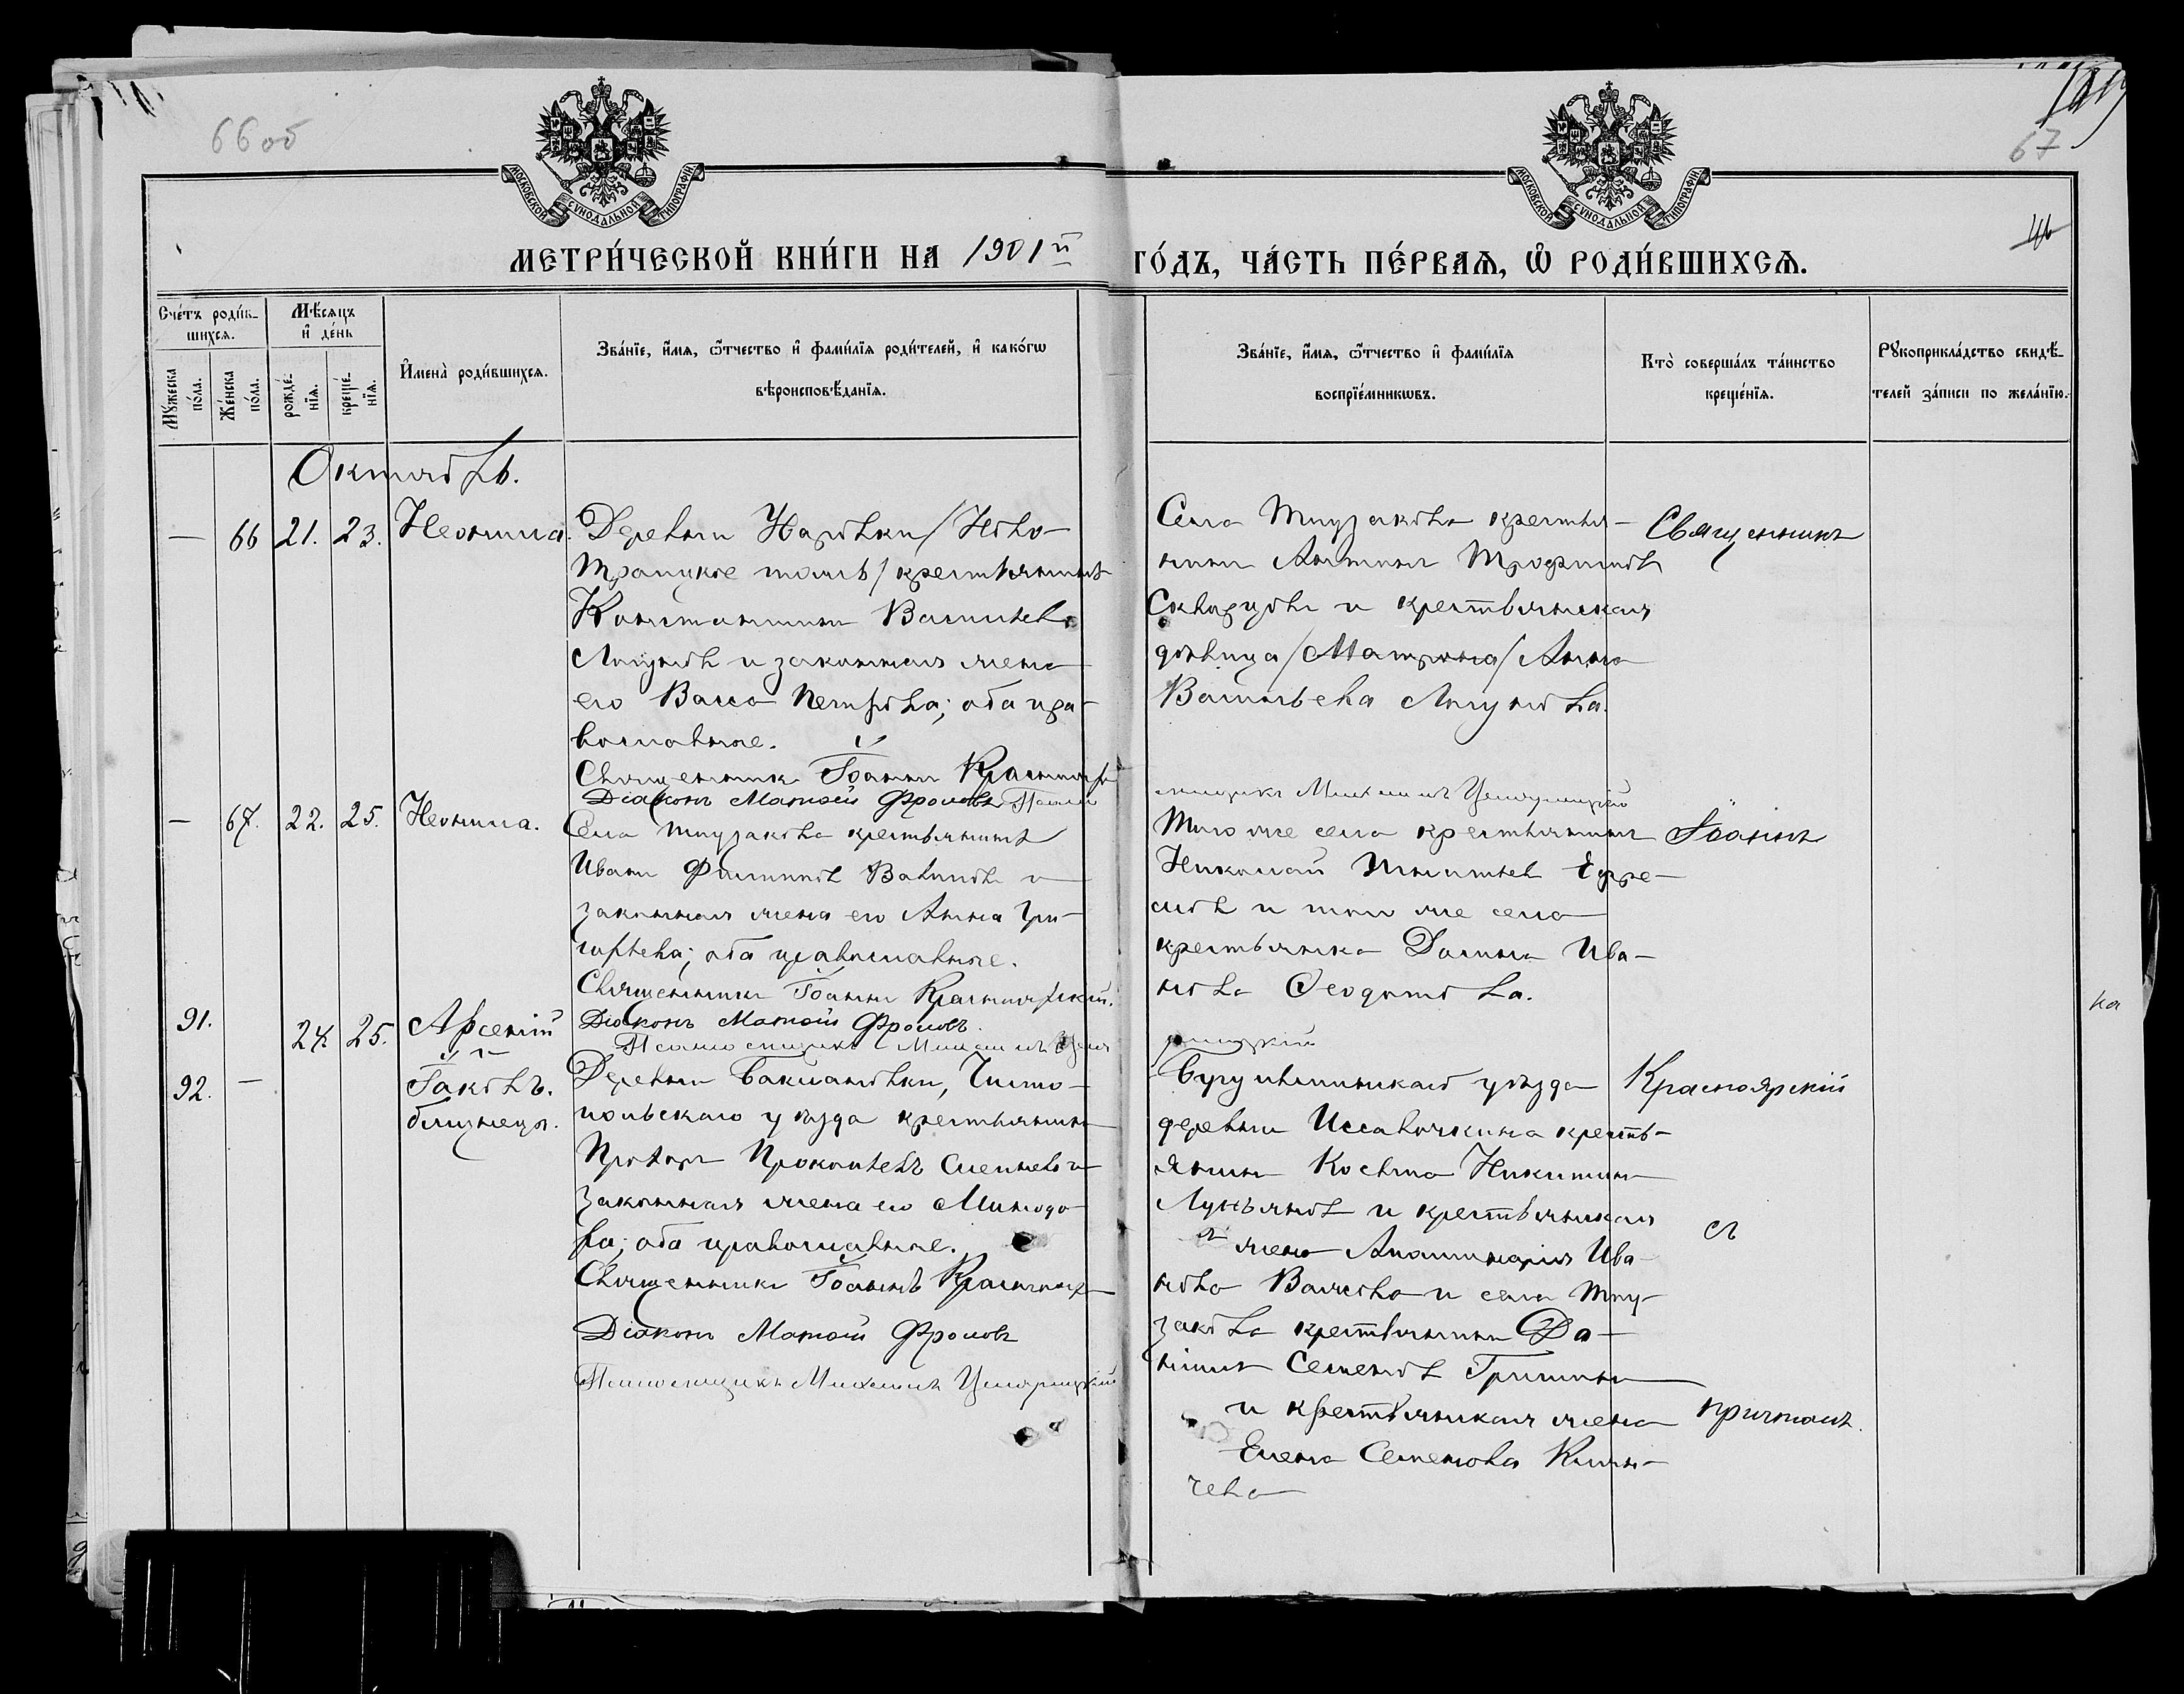 66 об
67
МОСКОВСКОЙ СѴНОДАЛЬНОЙ ТИПОГРАФІИ
МОСКОВСКОЙ СѴНОДАЛЬНОЙ ТИПОГРАФІИ
МЕТРИ́ЧЕСКОЙ КНИ́ГИ НА 1901й ГО́ДЪ, ЧА́СТЬ ПЕ́РВАѦ, Ѡ҆ РОДИ́ВШИХСѦ.
Сче́тъ роди́в-
шихсѧ.
Мꙋ́жеска по́ла.
Же́нска по́ла.
Мѣ́сѧцъ
и҆ де́нь
рожде́-
нїѧ.
креще́-
нїѧ.
И҆мена̀ роди́вшихсѧ.
Зва́нїе, и҆́мѧ, ѻ҆́тчество и҆ фами́лїѧ роди́телей, и҆ како́гѡ
вѣроисповѣ́данїѧ.
Зва́нїе, и҆́мѧ, ѻ҆́тчество и҆ фами́лїѧ
воспрїе́мникѡвъ.
Кто̀ соверша́лъ та́инство
креще́нїѧ.
Рꙋкоприкла́дство свидѣ́-
телей за́писи по жела́нїю.
Октябрь.
— 66 21. 23. Неонила.
Деревни /Ново-
Троицкое тожъ/ крестьянинъ
Константинъ Васильевъ
и законная жена
его Васса Петрова; оба пра-
вославные.
Священникъ Іоаннъ
Діаконъ Матѳей Фроловъ
Села крестья-
нинъ Антонъ Трофимовъ
Скворцовъ и крестьянская
дѣвица /Матрона/ Анна
Васильева
Священникъ
— 67. 22. 25. Неонила.
Села крестьянинъ
Иванъ Филиповъ и
законная жена его Анна Гри-
горьева; оба православные.
Священникъ Іоаннъ Красноярскій.
Діаконъ Матѳей Фроловъ.
Псаломщикъ Михаилъ
Того же села крестьянинъ
Николай Игнатьевъ Ефре-
мовъ и того же села
крестьянка Домна Ива-
нова Ѳеодотова.
Іоаннъ
91. 24 25. Арсеній
и
92. — Іаковъ.
близнецы.
Деревни Чисто-
польскаго уѣзда крестьянинъ
Прохоръ Прокопьевъ и
законная жена его Минодо-
ра; оба православные.
Священникъ Іоаннъ
Діаконъ Матѳей Фроловъ
Псаломщикъ Михаилъ
Бугульминскаго уѣзда
деревни кресть-
янинъ Косьма Никитинъ
Лукьяновъ и крестьянская
жена Аполинарія Ива-
нова и села
крестьянинъ Да-
ніилъ Семеновъ Гришинъ
и крестьянская жена
Елена Семенова
чева
Красноярскій
съ
причтомъ.
ка